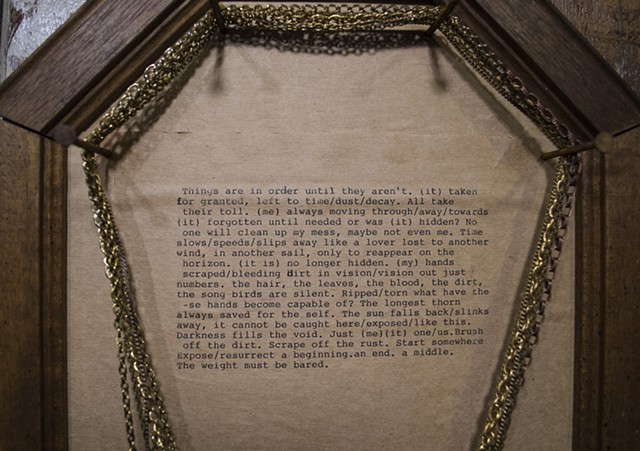 Things are in order until they aren't. (it) taken
for granted, left to time/dust/decay. All take
their toll. (me) always moving through/away/towards
(it) forgotten until needed or was (it) hidden? No
one will clean up my mess, maybe not even me. Time
slows/speeds/slips away like a lover lost to another
wind, in another sail, only to reappear on the
horizon. (it is) no longer hidden. (my) hands
scraped/bleeding dirt in vision/vision out just
numbers. the hair, the leaves, the blood, the dirt,
the song birds are silent. Ripped/torn what have the
-se hands become capable of? The longest thorn
always saved for the self. The sun falls back/slinks
away, it cannot be caught here/exposed/like this.
Darkness fills the void. Just (me)(it) one/us.Brush
off the dirt. Scrape off the rust. Start somewhere
Expose/resurrect a beginning.an end. a middle.
The weight must be bared.